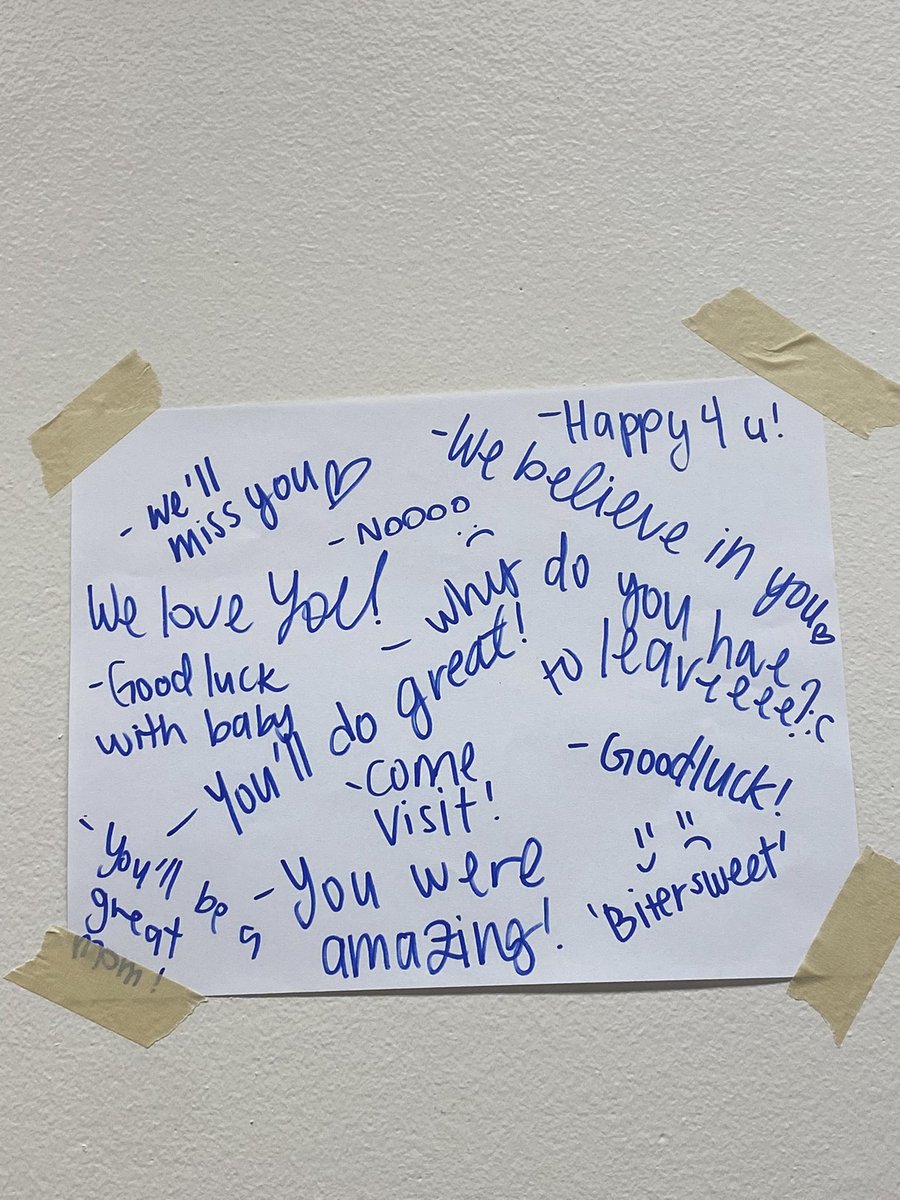 - Happy 4 u!
- We believe in you
- we'll
miss you
- Noooo :(
We love you!
- why do you have
to leaveeeee?:c
- Good luck
with baby
- You'll do great!
- Come
visit!
- Goodluck!
- You'll be a
great
mom!
- You were
amazing!
'Bitersweet'